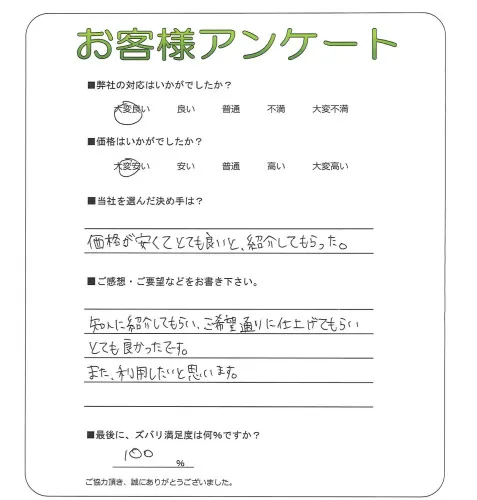 お客様アンケート
■弊社の対応はいかがでしたか？
大変良い　良い　普通　不満　大変不満
■価格はいかがでしたか？
大変安い　安い　普通　高い　大変高い
■当社を選んだ決め手は？
価格が安くてとても良いと、紹介してもらった。
■ご感想・ご要望などをお書き下さい。
知人に紹介してもらい、ご希望通りに仕上げてもらい
とても良かったです。
また、利用したいと思います。
■最後に、ズバリ満足度は何％ですか？
100 %
ご協力頂き、誠にありがとうございました。